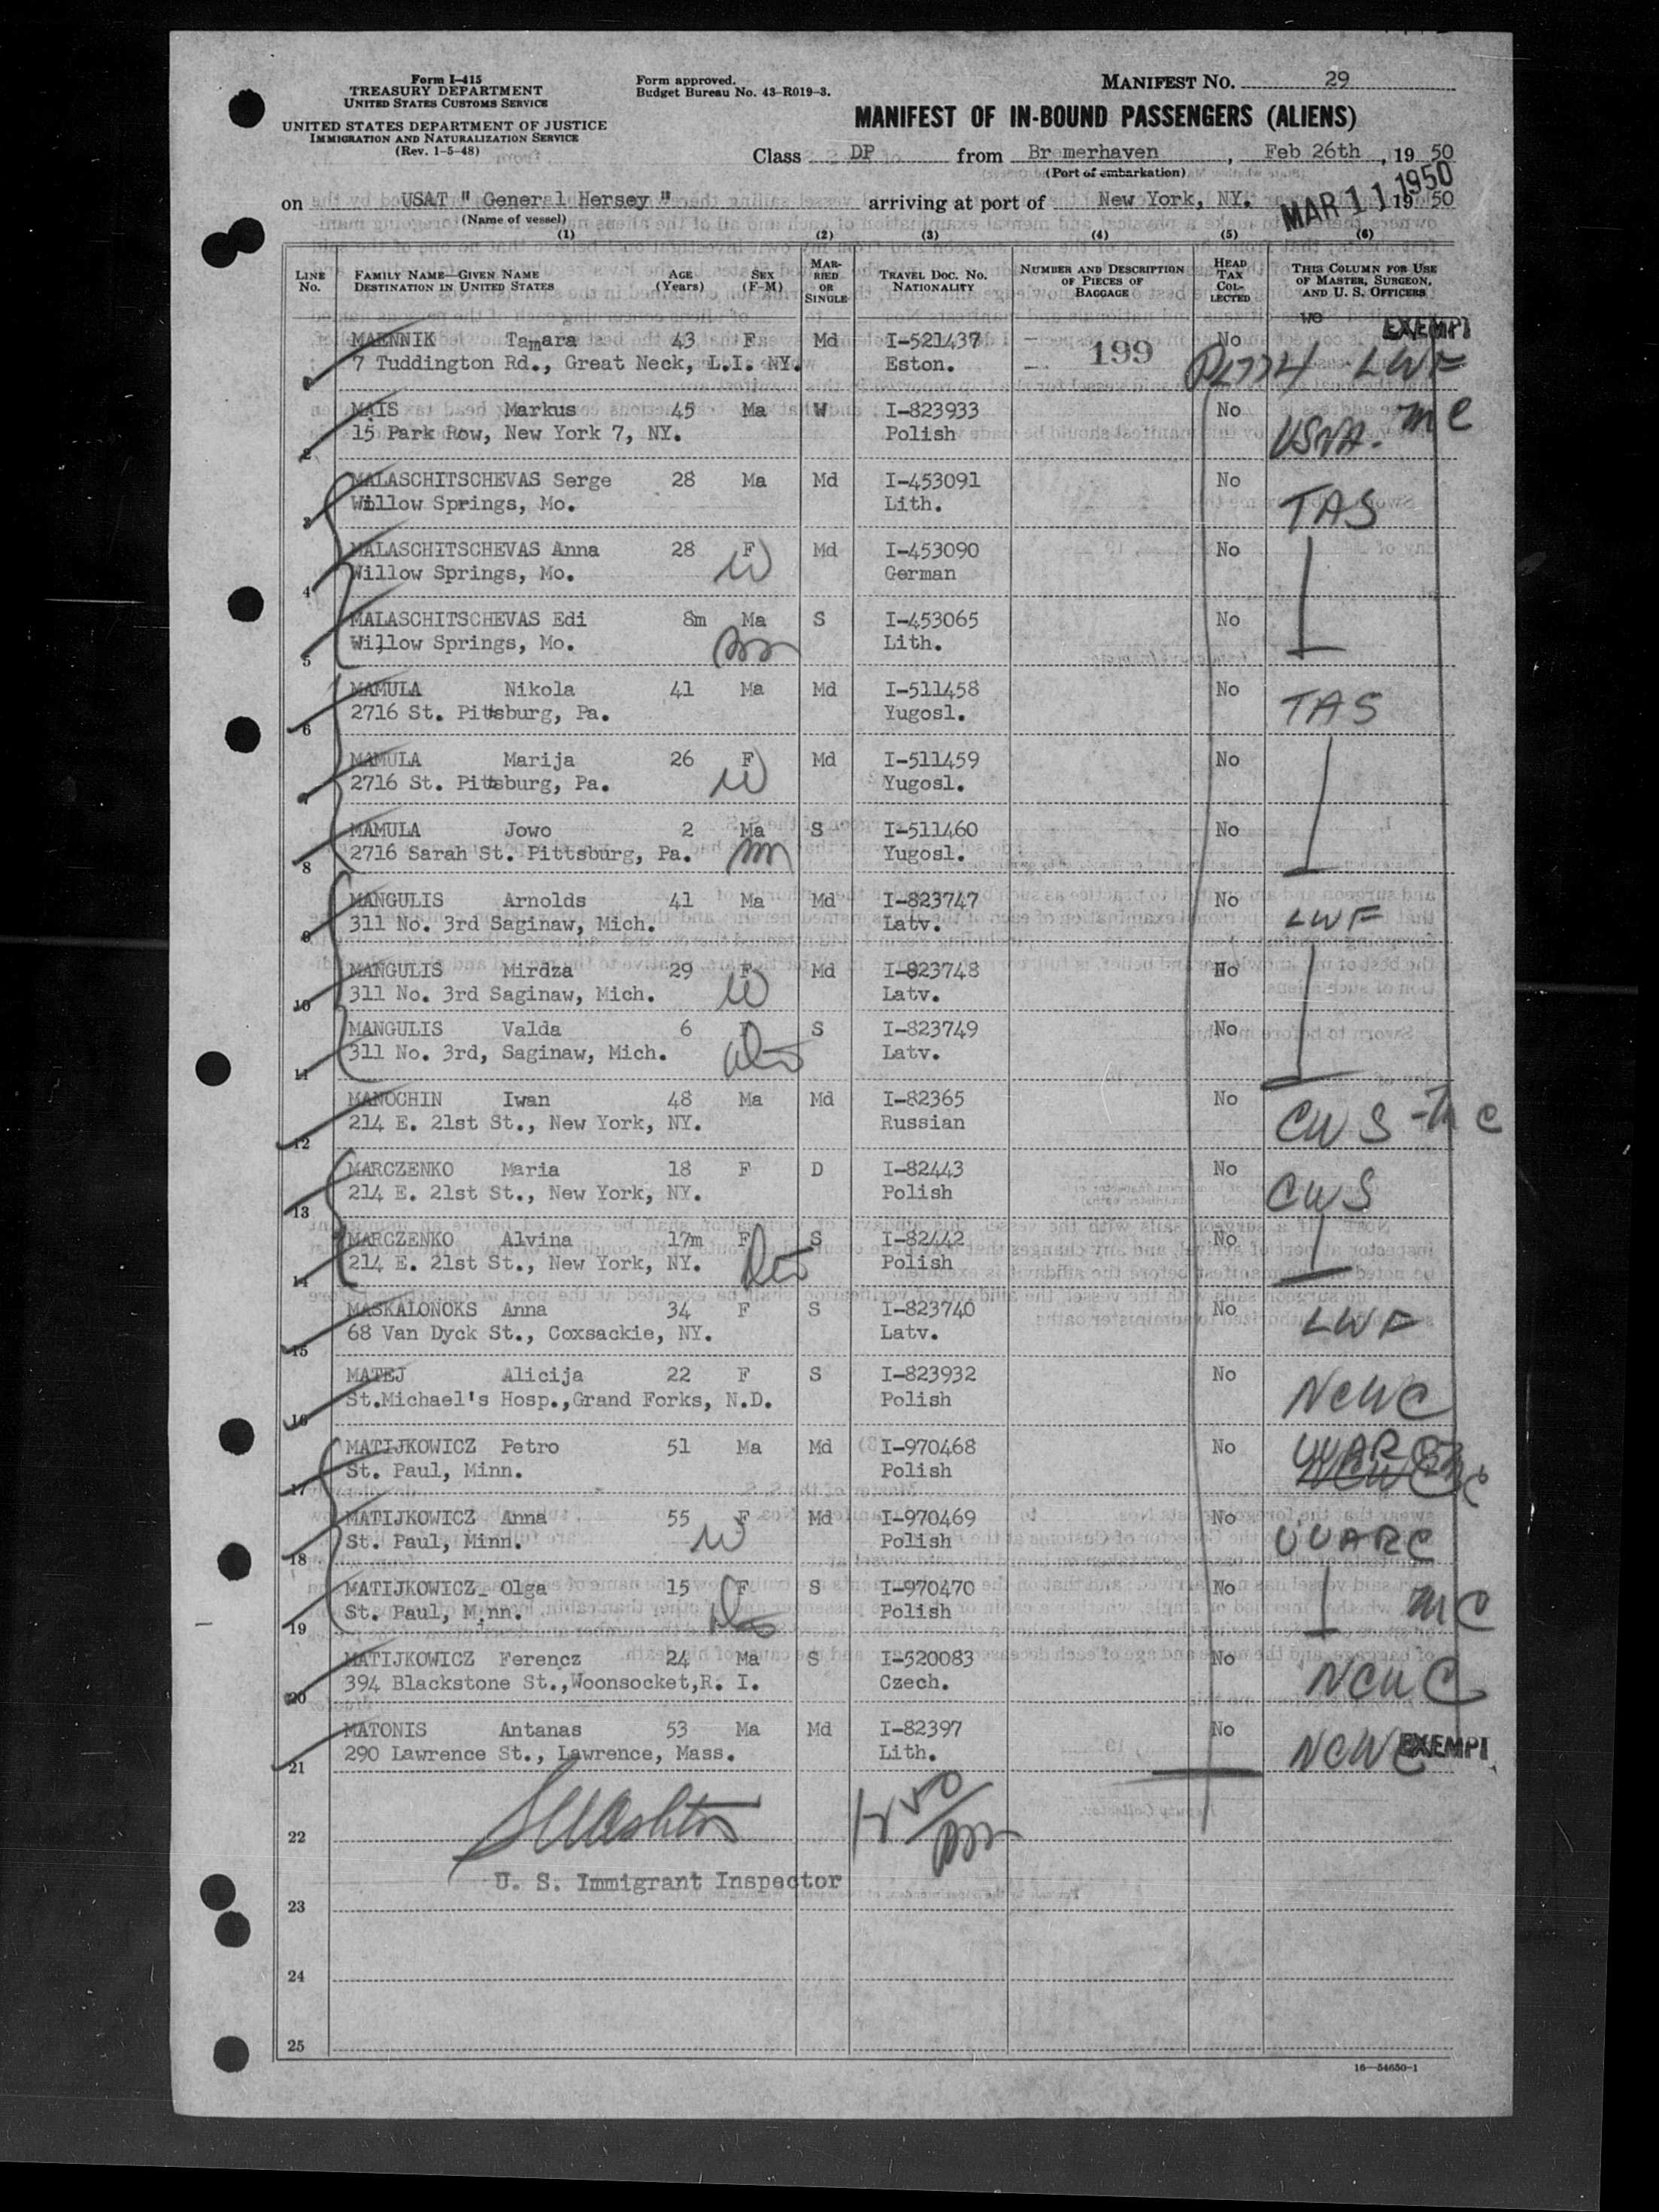 Form I-415
TREASURY DEPARTMENT
UNITED STATES CUSTOMS SERVICE
UNITED STATES DEPARTMENT OF JUSTICE
IMMIGRATION AND NATURALIZATION SERVICE
(Rev. 1-5-48)
Form approved.
Budget Bureau No. 43-R019-3.
MANIFEST NO. 29
MANIFEST OF IN-BOUND PASSENGERS (ALIENS)
Class DP from Bremerhaven, Feb 26th, 19 50
(Port of embarkation)
on USAT " General Hersey " arriving at port of New York, NY. MAR 11 1950 19 50
(Name of vessel)
(1) (2) (3) (4) (5) (6)
LINE No. FAMILY NAME—GIVEN NAME DESTINATION IN UNITED STATES AGE (Years) SEX (F-M) MARRIED OR SINGLE TRAVEL DOC. NO. NATIONALITY NUMBER AND DESCRIPTION OF PIECES OF BAGGAGE HEAD TAX COLLECTED THIS COLUMN FOR USE OF MASTER, SURGEON, AND U. S. OFFICERS
MAENNIK Tamara 43 F Md I-521437 199 No EXEMPT
7 Tuddington Rd., Great Neck, L.I. NY. Eston. LWF
2 MAIS Markus 45 Ma W I-823933 No mc
15 Park Row, New York 7, NY. Polish USNA.
3 MALASCHITSCHEVAS Serge 28 Ma Md I-453091 No
Willow Springs, Mo. Lith. TAS
4 MALASCHITSCHEVAS Anna 28 F Md I-453090 No
Willow Springs, Mo. W German
5 MALASCHITSCHEVAS Edi 8m Ma S I-453065 No
Willow Springs, Mo. Lith.
6 MAMULA Nikola 41 Ma Md I-511458 No
2716 St. Pittsburg, Pa. Yugosl. TAS
MAMULA Marija 26 F Md I-511459 No
2716 St. Pittsburg, Pa. W Yugosl.
8 MAMULA Jowo 2 Ma S I-511460 No
2716 Sarah St. Pittsburg, Pa. Yugosl.
9 MANGULIS Arnolds 41 Ma Md I-823747 No
311 No. 3rd Saginaw, Mich. Latv. LWF
10 MANGULIS Mirdza 29 F Md I-823748 No
311 No. 3rd Saginaw, Mich. W Latv.
11 MANGULIS Valda 6 F S I-823749 No
311 No. 3rd, Saginaw, Mich. Latv.
12 MANOCHIN Iwan 48 Ma Md I-82365 No
214 E. 21st St., New York, NY. Russian CWS - mc
13 MARCZENKO Maria 18 F D I-82443 No
214 E. 21st St., New York, NY. Polish CWS
14 MARCZENKO Alvina 17m F S I-82442 No
214 E. 21st St., New York, NY. Polish
15 MASKALONOKS Anna 34 F S I-823740 No
68 Van Dyck St., Coxsackie, NY. Latv. LWF
16 MATEJ Alicija 22 F S I-823932 No
St.Michael's Hosp.,Grand Forks, N.D. Polish NCWC
17 MATIJKOWICZ Petro 51 Ma Md I-970468 No
St. Paul, Minn. Polish
18 MATIJKOWICZ Anna 55 F Md I-970469 No
St. Paul, Minn. W Polish UUARC
19 MATIJKOWICZ Olga 15 F S I-970470 No
St. Paul, Minn. Polish mc
20 MATIJKOWICZ Ferencz 24 Ma S I-520083 No
394 Blackstone St.,Woonsocket,R. I. Czech. NCWC
21 MATONIS Antanas 53 Ma Md I-82397 No
290 Lawrence St., Lawrence, Mass. Lith. NCWC EXEMPT
22
U. S. Immigrant Inspector
23
24
25
16—54650-1